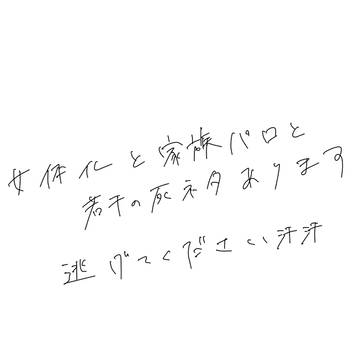 女体化と家族パロと
若干の死ネタあります
逃げてください汗汗